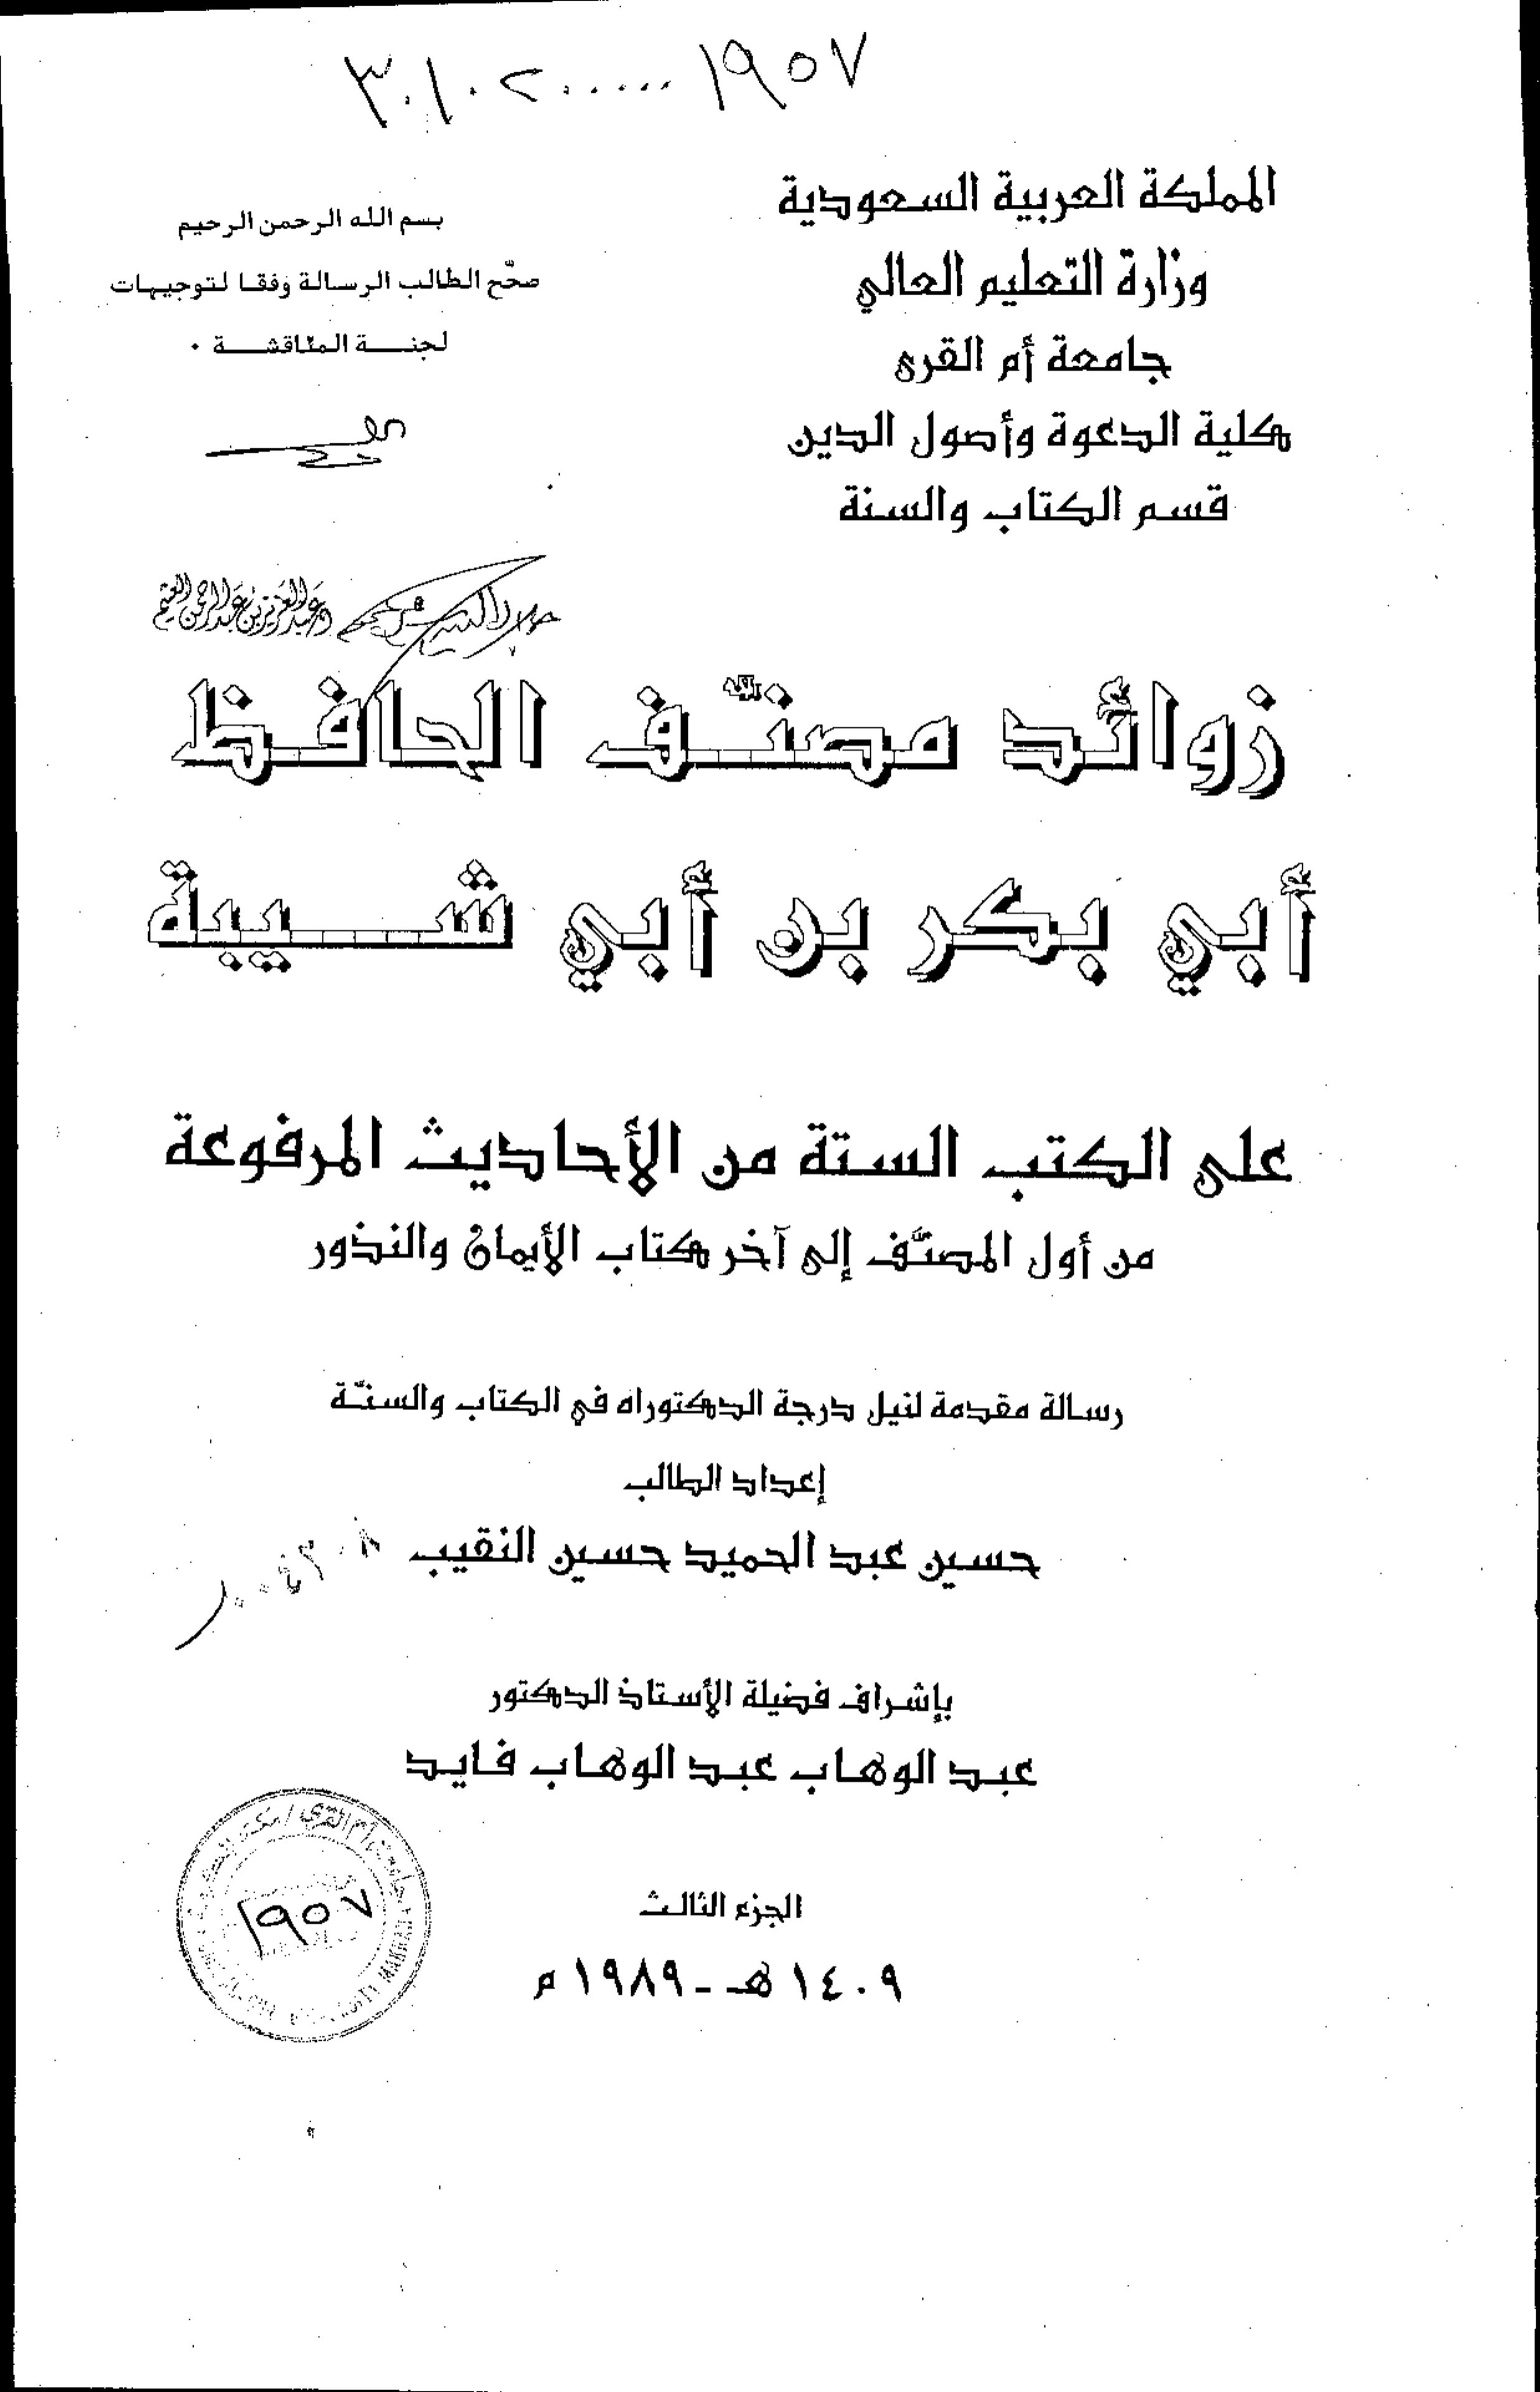 ٣٠١٠٢٠٠٠٠٠٠١٩٥٧
المملكة العربية السعودية
وزارة التعليم العالي
جامعة أم القرى
كلية الدعوة وأصول الدين
قسم الكتاب والسنة
بسم الله الرحمن الرحيم
صحّح الطالب الرسالة وفقا لتوجيهات
لجنــة المناقشــة ٠
زوائد مصنّف الحافظ
أبي بكر بن أبي شيبة
على الكتب الستة من الأحاديث المرفوعة
من أول المصنّف إلى آخر كتاب الأيمان والنذور
رسالة مقدمة لنيل درجة الدكتوراه في الكتاب والسنّة
إعداد الطالب
حسين عبد الحميد حسين النقيب
بإشراف فضيلة الأستاذ الدكتور
عبد الوهاب عبد الوهاب فايد
الجزء الثالث
١٤٠٩ هـ - ١٩٨٩ م
١٩٥٧